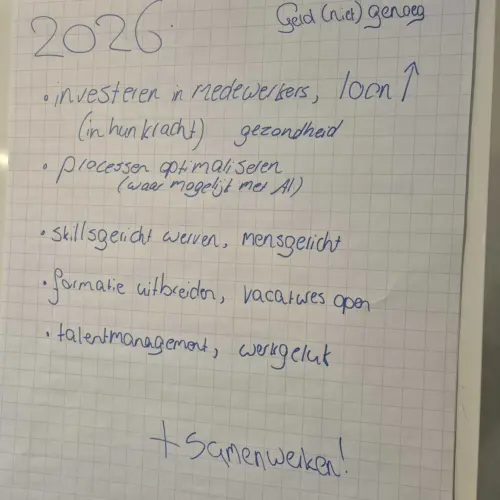 2026
Geld (niet) genoeg
• investeren in medewerkers, loon ↑
(in hun kracht) gezondheid
• processen optimaliseren
(waar mogelijk met AI)
• skillsgericht werven, mensgericht
• formatie uitbreiden, vacatures open
• talentmanagement, werkgeluk
+ samenwerken!